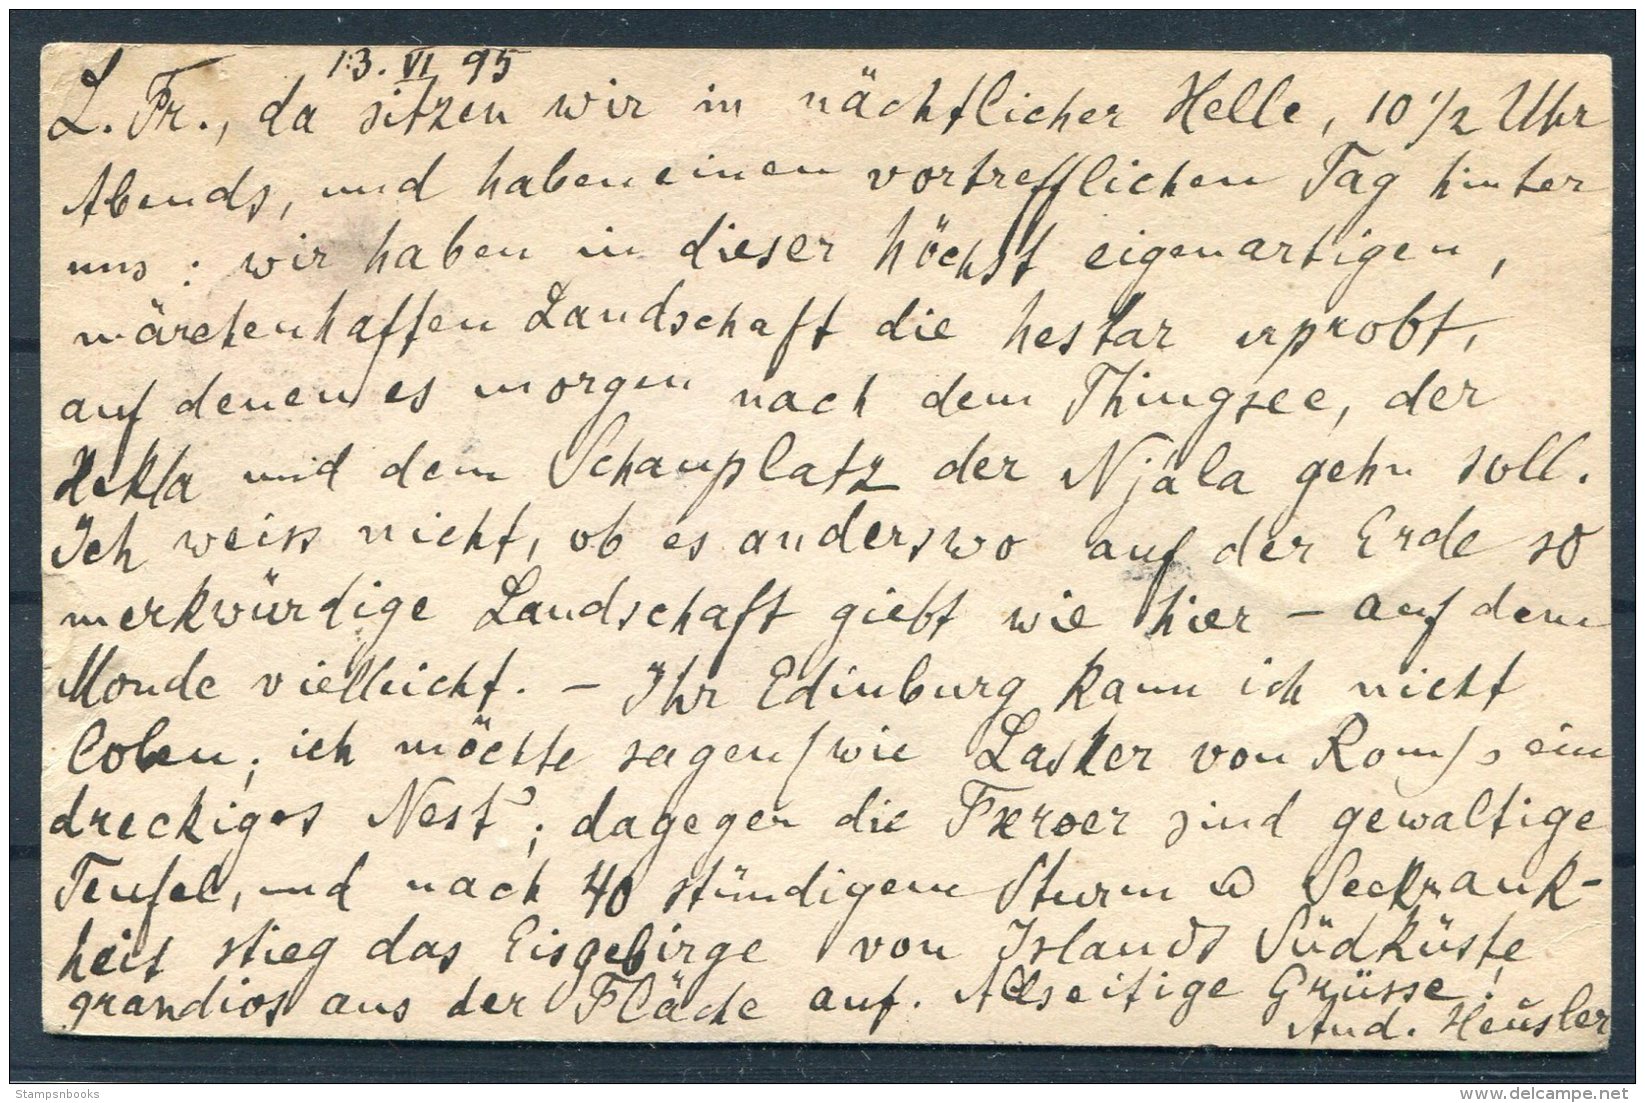 13. VI 95
L. Fr., da sitzen wir in nächtlicher Helle, 10 1/2 Uhr
Abends, und haben einen vortrefflichen Tag hinter
uns : wir haben in dieser höchst eigenartigen,
märchenhaften Landschaft die hestar erprobt,
auf denen es morgen nach dem Thingsee, der
Hekla und dem Schauplatz der Njála gehn soll.
Ich weiss nicht, ob es anderswo auf der Erde so
merkwürdige Landschaft giebt wie hier – auf dem
Monde vielleicht. – Ihr Edinburg kann ich nicht
loben; ich möchte sagen (wie Lasker von Rom) „ein
dreckiges Nest“; dagegen die Færoer sind gewaltige
Teufel, und nach 40 stündigem Sturm u Seekrank-
heit stieg das Eisgebirge von Islands Südküste
grandios aus der Fläche auf. Allseitige Grüsse!
And. Heusler
Stampsnbooks
delcampe.net